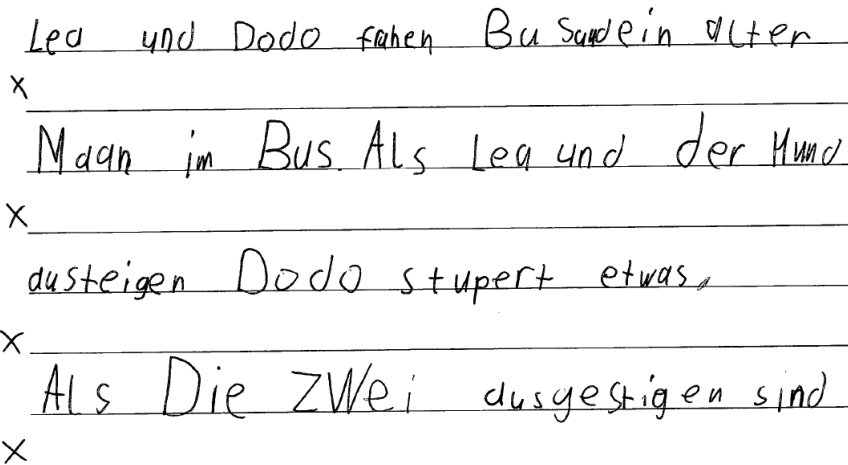 Lea und Dodo frahen Bus und ein alter
x
Maan im Bus. Als Lea und der Hund
x
austeigen Dodo stupert etwas,
x
Als Die ZWei ausgestigen sind
x